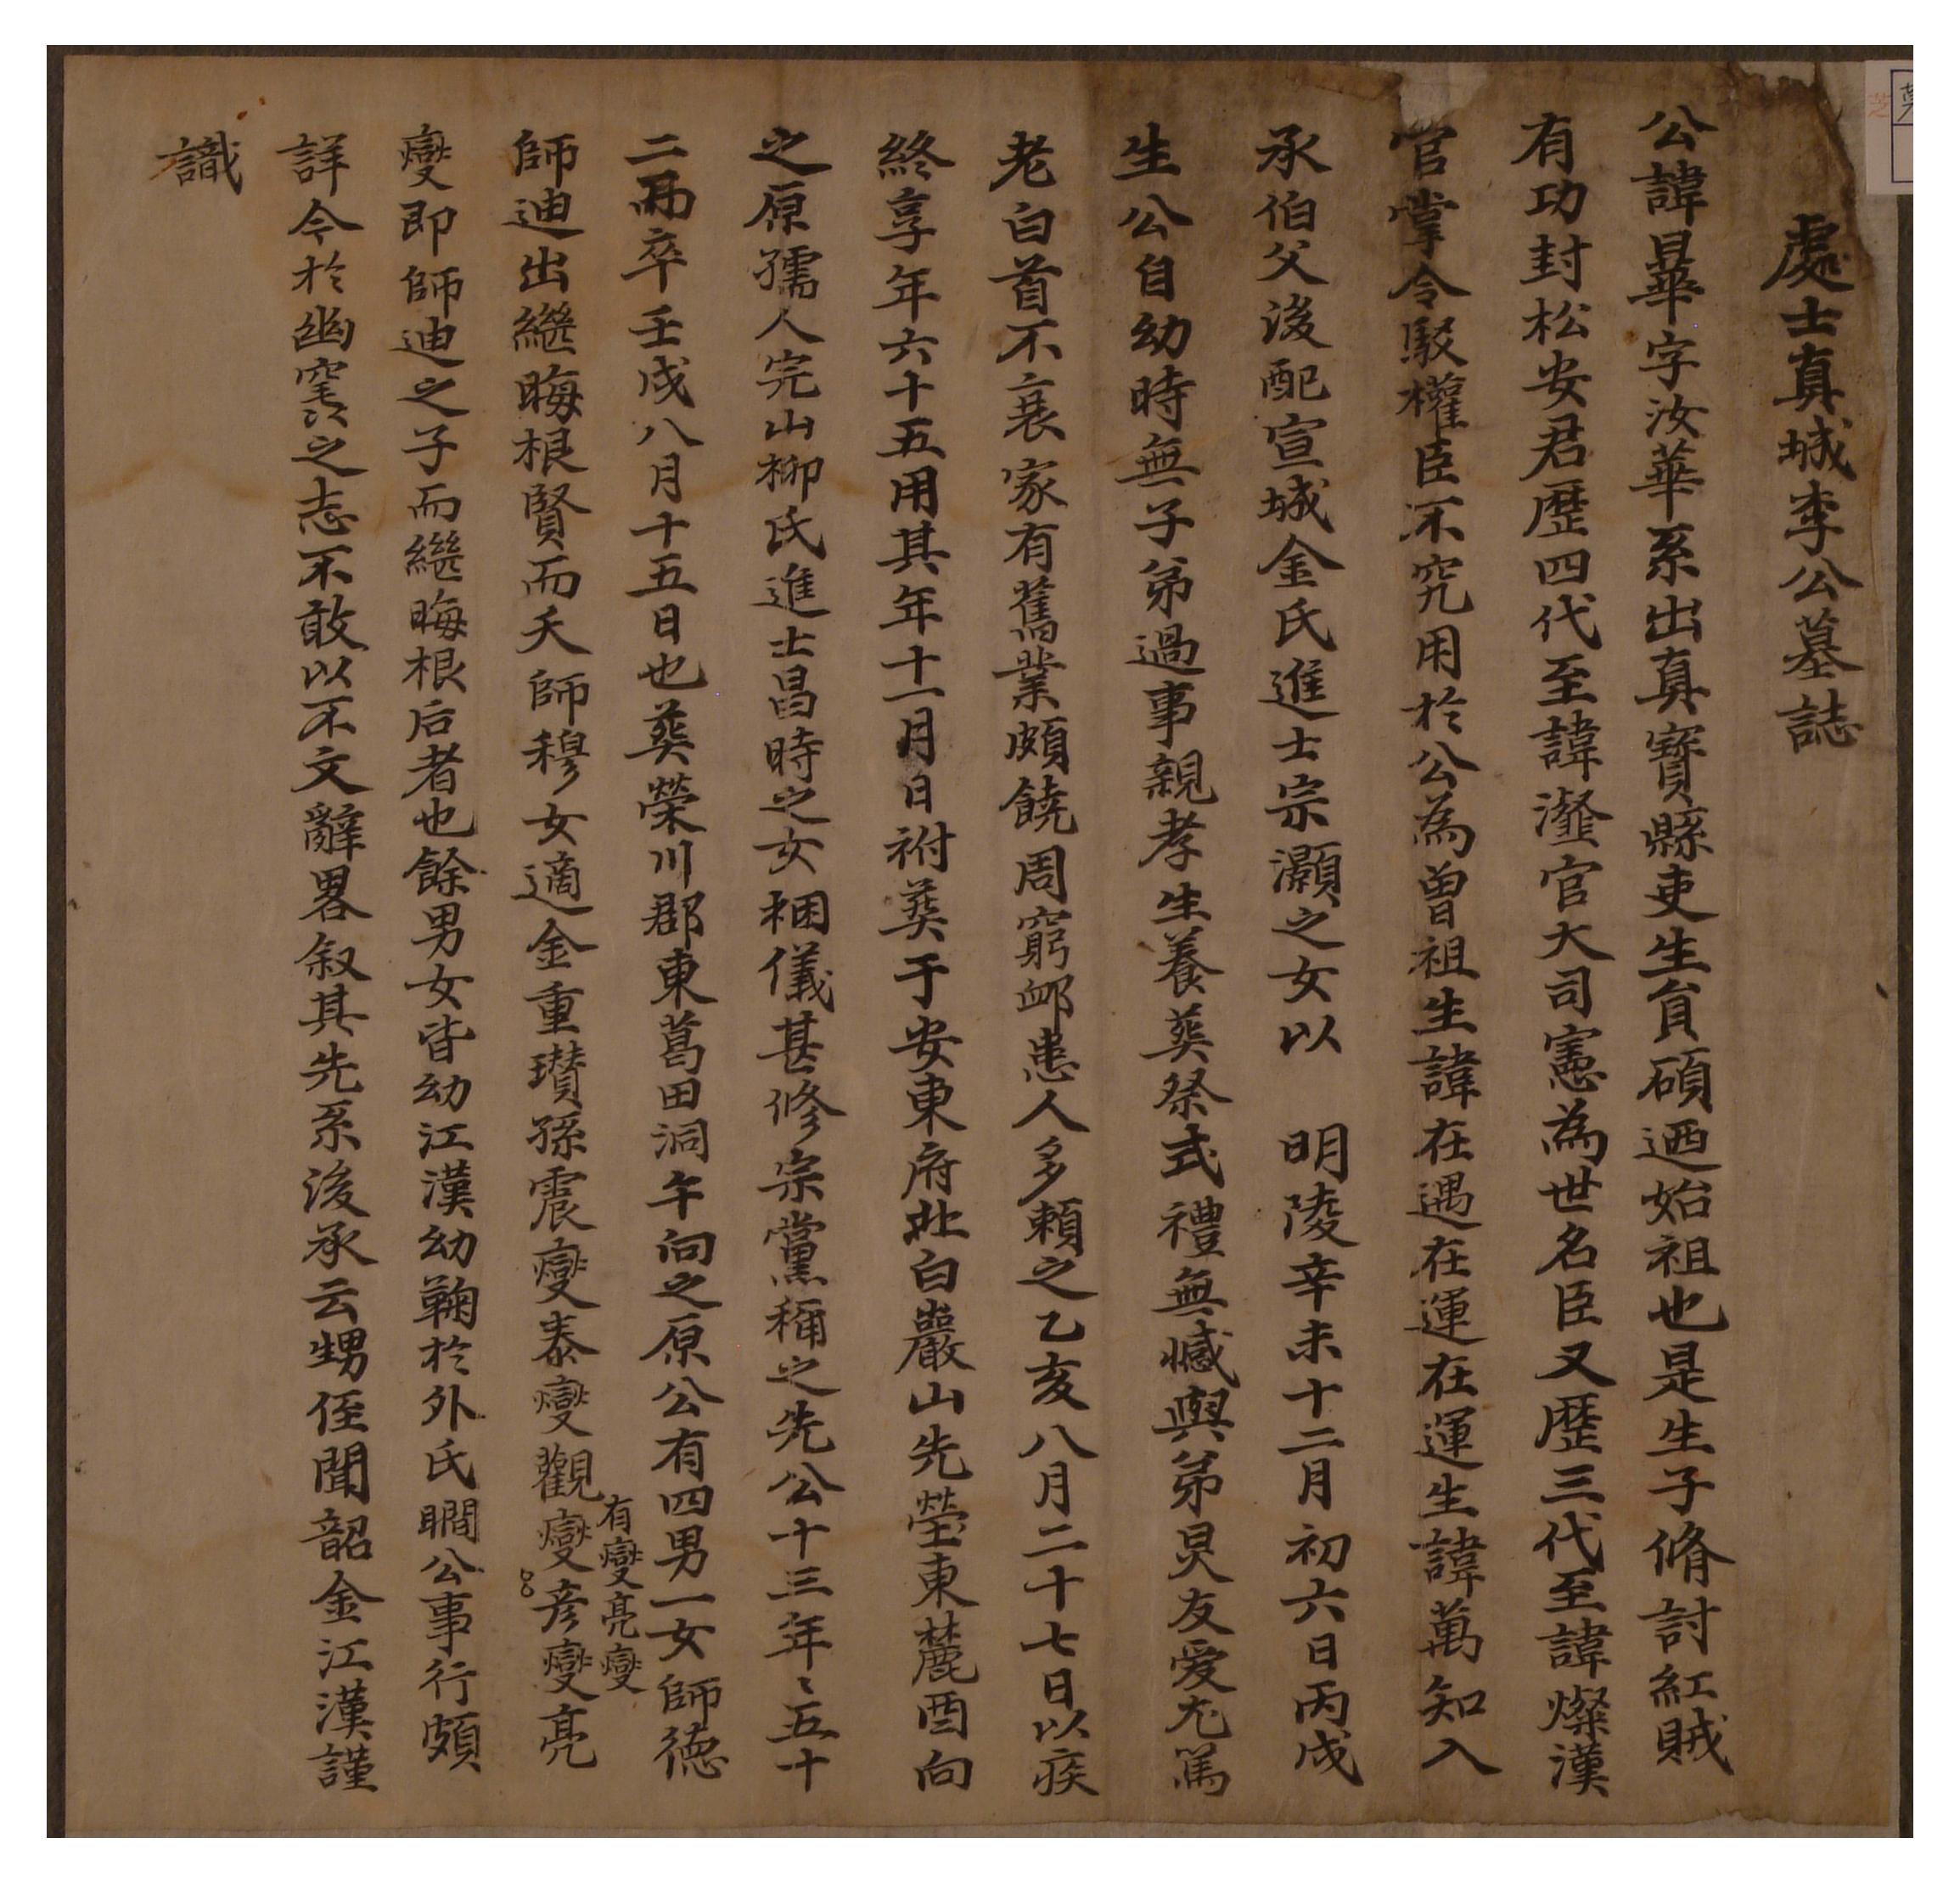 處士真城李公墓誌
公諱㬸字汝華系出真寶縣吏生貟碩迺始祖也是生子脩討紅賊
有功封松安君歷四代至諱瀣官大司憲為世名臣又歷三代至諱燦漢
官掌令駁權臣不究用於公為曾祖生諱在遇在運在運生諱萬知入
承伯父後配宣城金氏進士宗灝之女以 明陵辛未十二月初六日丙戌
生公自幼時無子弟過事親孝生養葬祭式禮無憾與弟炅友愛尤篤
老白首不衰家有舊業頗饒周窮卹患人多賴之乙亥八月二十七日以疾
終享年六十五用其年十一月日祔葬于安東府北白巖山先塋東麓酉向
之原孺人完山柳氏進士昌時之女梱儀甚修宗黨稱之先公十三年〻五十
二而卒壬戌八月十五日也葬榮川郡東葛田洞午向之原公有四男一女師德
師迪出繼晦根賢而夭師穆女適金重瓚孫震燮泰燮觀燮彦燮亮
有燮亮燮
燮即師迪之子而繼晦根后者也餘男女皆幼江漢幼鞠於外氏瞷公事行頗
詳今於幽窀之志不敢以不文辭畧叙其先系後承云甥侄聞韶金江漢謹
識